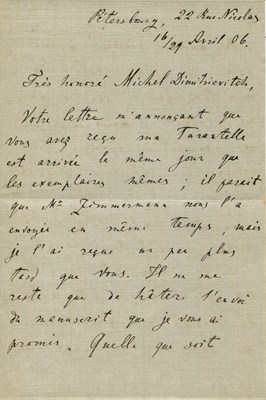 Pétersbourg, 22 Rue Nicolas
16/29 Avril 06.
Très honoré Michel Dimitriévitch,
Votre lettre m'annonçant que
vous avez reçu ma Tarantelle
est arrivée le même jour que
les exemplaires mêmes ; il parait
que Mr Zimmermann nous l'a
envoyée en même temps, mais
je l'ai reçue un peu plus
tard que vous. Il ne me
reste que de hâter l'envoi
du manuscrit que je vous ai
promis. Quelle que soit